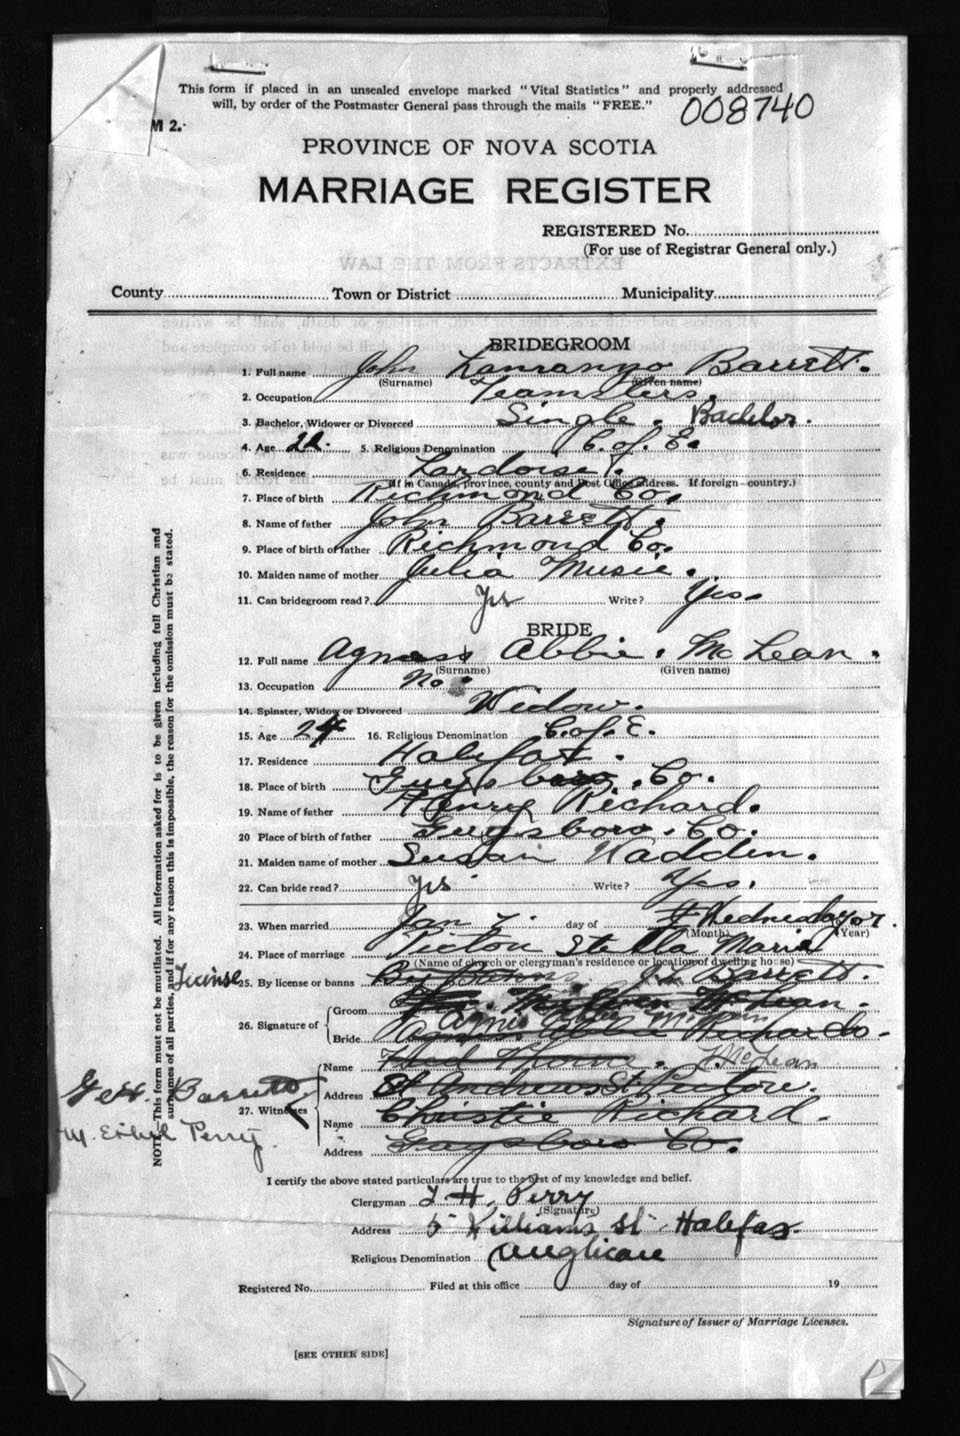 This form if placed in an unsealed envelope marked "Vital Statistics" and properly addressed
will, by order of the Postmaster General pass through the mails "FREE."
008740
M 2.
PROVINCE OF NOVA SCOTIA
MARRIAGE REGISTER
REGISTERED No.
(For use of Registrar General only.)
EXTRACTS FROM THE LAW
County Town or District Municipality
BRIDEGROOM
1. Full name John Barrett.
(Surname) (Given name)
2. Occupation Teamsters.
3. Bachelor, Widower or Divorced Single. Bachelor.
4. Age 22. 5. Religious Denomination C. of. E.
6. Residence
(If in Canada, province, county and Post Office address. If foreign—country.)
7. Place of birth Richmond Co.
8. Name of father John Barrett.
9. Place of birth of father Richmond Co.
10. Maiden name of mother Julia Musie.
11. Can bridegroom read? Yes Write? Yes.
BRIDE
12. Full name Agness Abbie. McLean.
(Surname) (Given name)
13. Occupation No.
14. Spinster, Widow or Divorced Widow.
15. Age 24 16. Religious Denomination C. of. E.
17. Residence Halifax.
18. Place of birth Guysboro. Co.
19. Name of father Henry Richard.
20 Place of birth of father Guysboro. Co.
21. Maiden name of mother Susan Wadden.
22. Can bride read? Yes Write? Yes.
23. When married Jan 7. day of Wednesday
(Month) (Year)
24. Place of marriage Pictou Stella Maris
(Name of church or clergyman's residence or location of dwelling house)
License
25. By license or banns Barrett.
26. Signature of
Groom McLean.
Bride Agnes McLean Richards.
McLean
27. Witnesses
Name Fred
Address St Andrews St. Pictou.
Name Christie Richard.
Address Guysboro Co.
Barrett
M. Ethel Perry.
NOTE—This form must not be mutilated. All information asked for is to be given including full Christian and
surnames of all parties, and if for any reason this is impossible, the reason for the omission must be stated.
I certify the above stated particulars are true to the best of my knowledge and belief.
Clergyman T H. Perry
(Signature)
Address 5 Williams St. Halifax.
Religious Denomination Anglican
Registered No. Filed at this office day of 19
Signature of Issuer of Marriage Licenses.
[SEE OTHER SIDE]